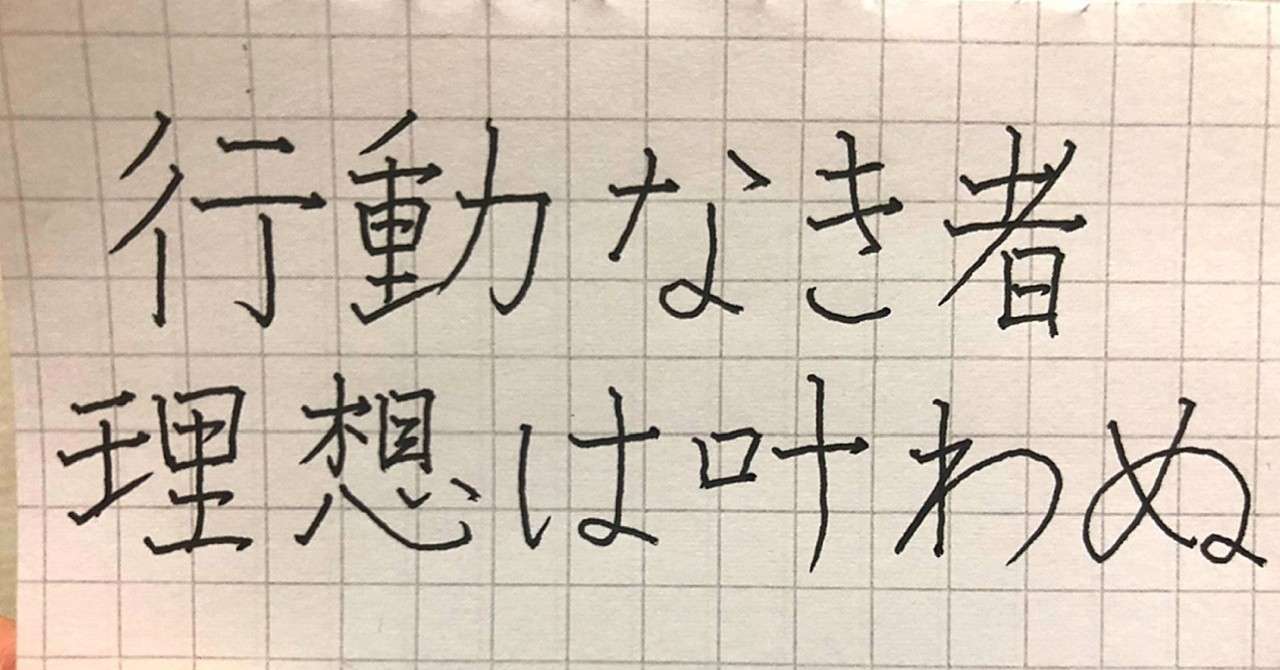 行動なき者
理想は叶わぬ